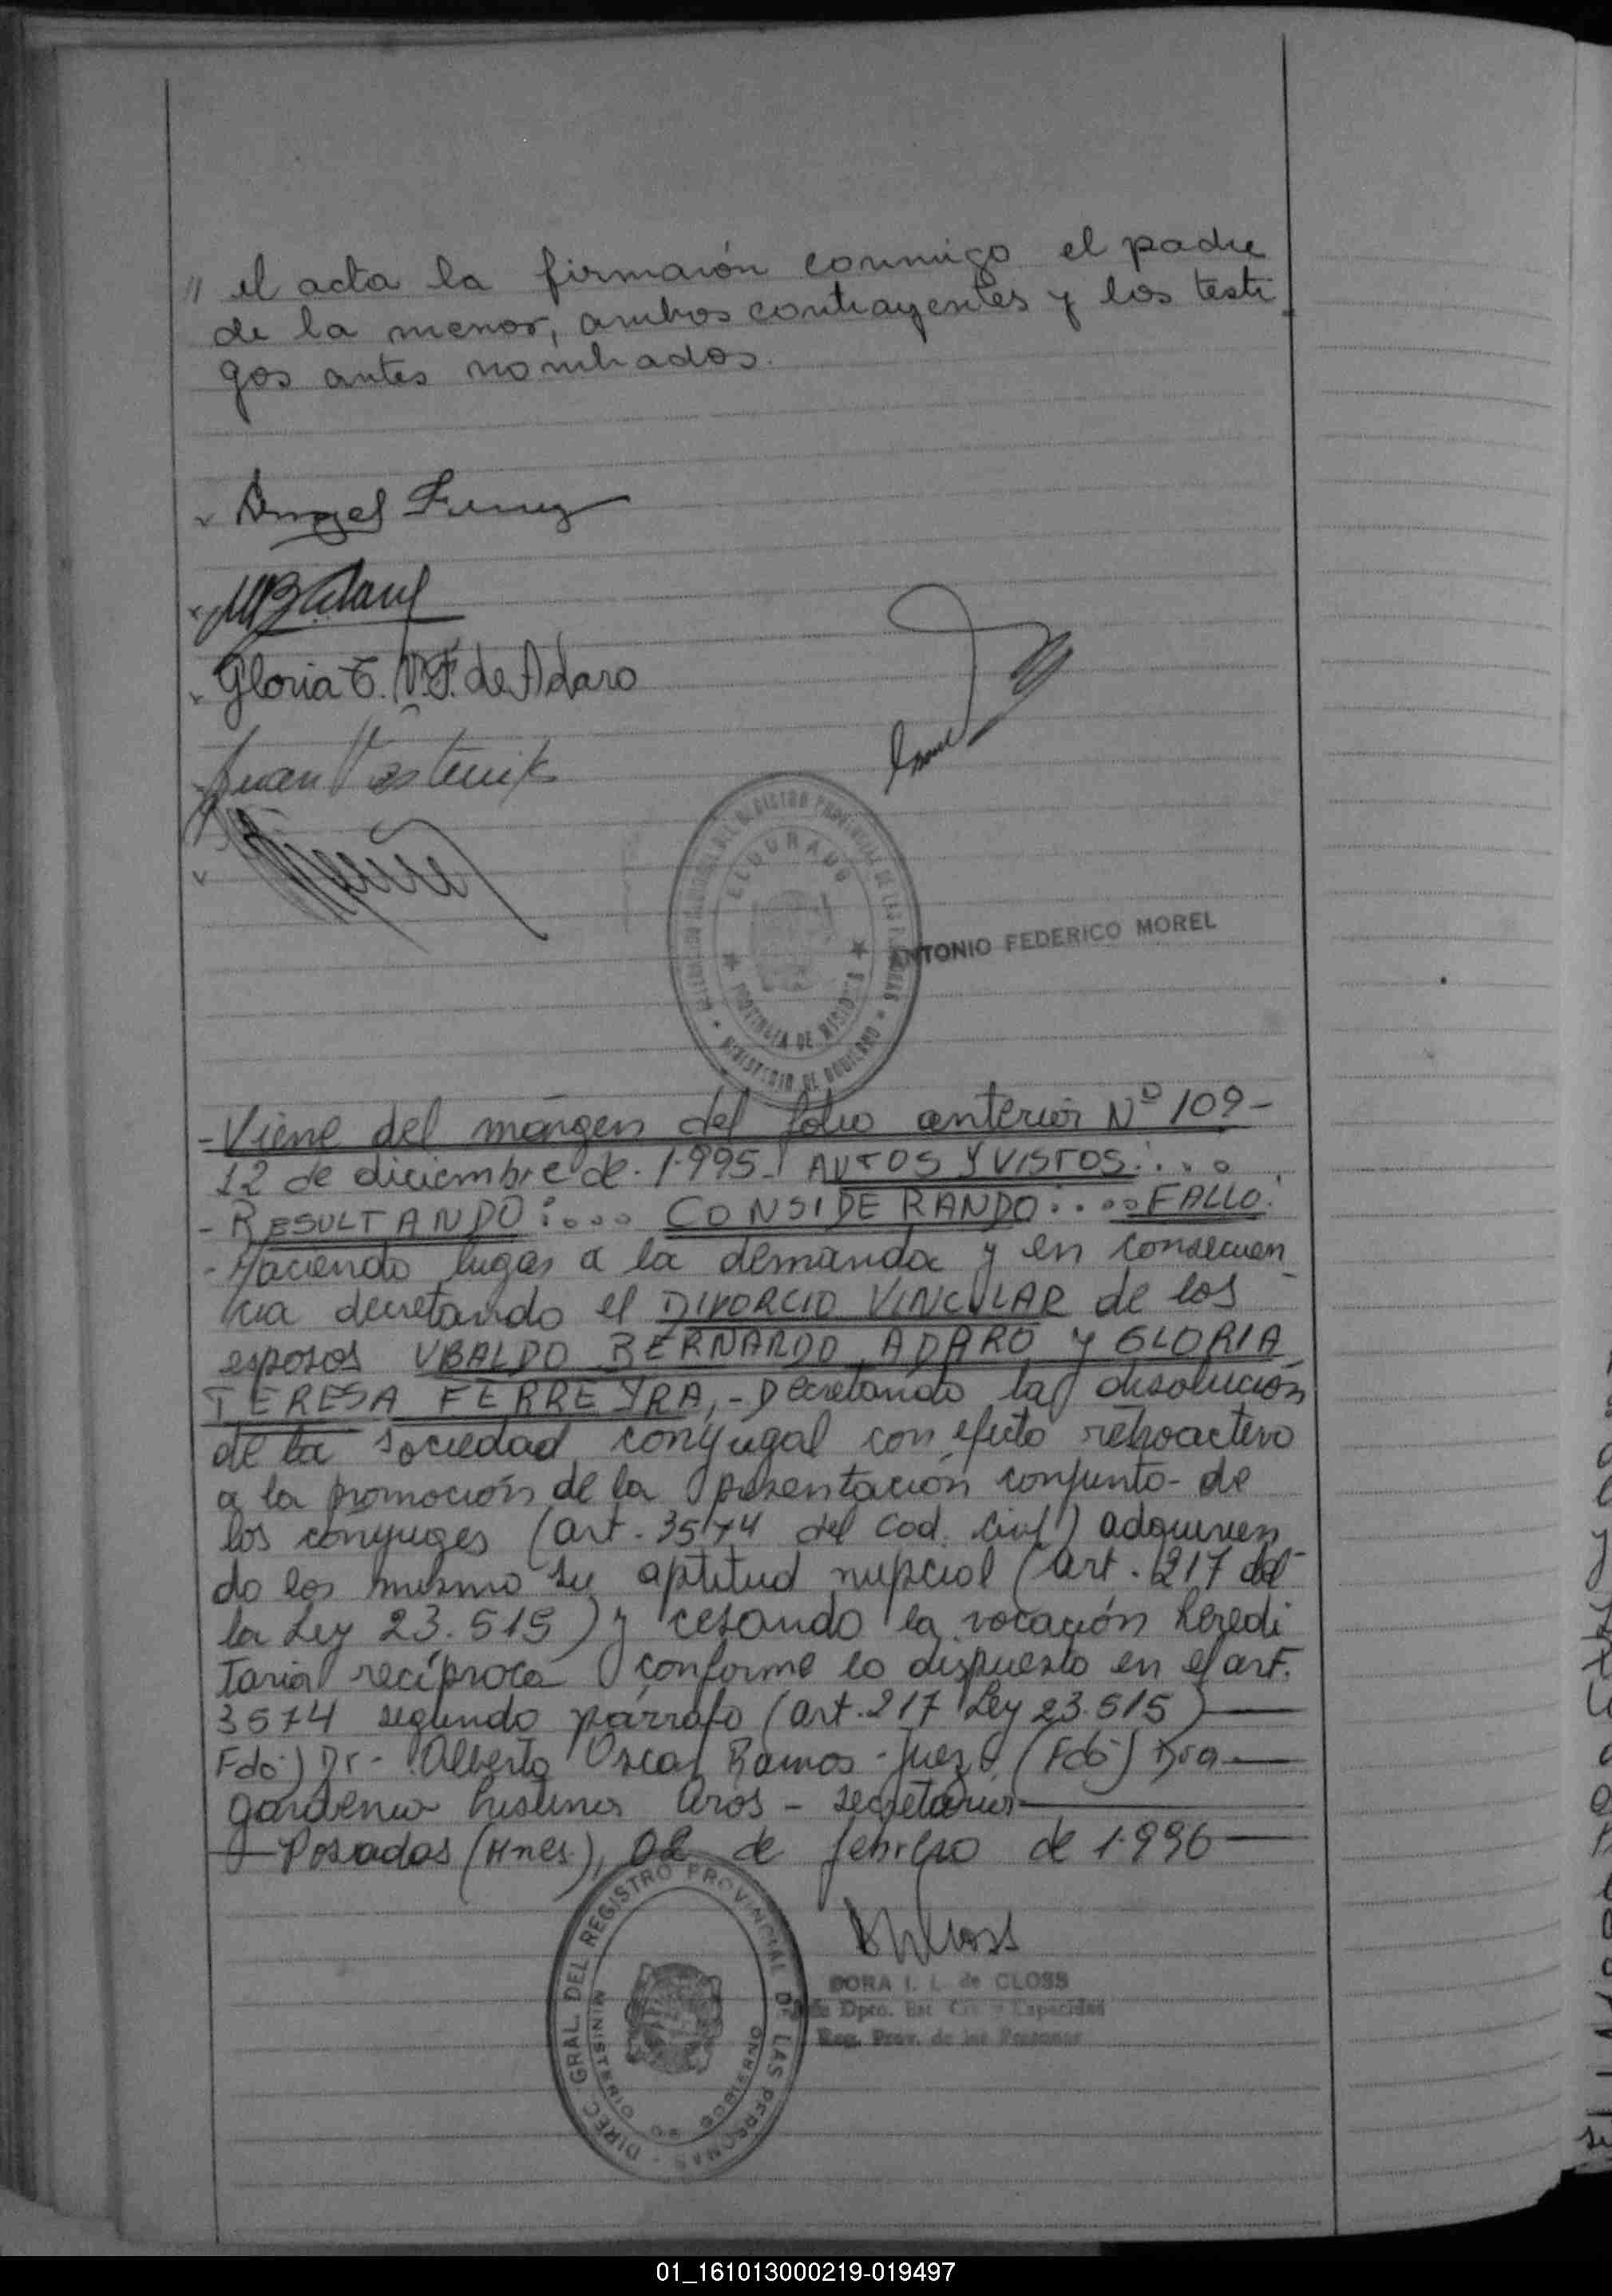 // el acta la firmaron conmigo el padre
de la menor, ambos contrayentes y los testi
gos antes nombrados.
Angel
Gloria T. V. F. de Adaro
Juan
ELDORADO
PROVINCIA DE MISIONES
MINISTERIO DE GOBIERNO
ANTONIO FEDERICO MOREL
- Viene del márgen del folio anterior Nº 109-
12 de diciembre de 1.995- AUTOS Y VISTOS:....
- RESULTANDO:.... CONSIDERANDO:.... FALLO:
- Haciendo lugar a la demanda y en consecuen
cia decretando el DIVORCIO VINCULAR de los
esposos UBALDO BERNARDO ADARO y GLORIA
TERESA FERREYRA,- Decretando la disolución
de la sociedad conyugal con efecto retroactivo
a la promoción de la presentación conjunta- de
los conyuges (art. 3574 del Cod. Civil) adquirien
do los mismo su aptitud nupcial (art. 217 de
la Ley 23.515) y cesando la vocación heredi
taria recíproca conforme lo dispuesto en el art.
3574 segundo párrafo (art. 217 Ley 23.515)
Fdo) Dr- Alberto Oscar Ramos - Juez (Fdo) Dra
Cristina Aros - secretaria
Posadas (Mnes), 02 de febrero de 1.996
DIREC. GRAL. DEL REGISTRO PROVINCIAL DE LAS PERSONAS
MINISTERIO DE GOBIERNO
DORA I. L. de CLOSS
Dpto. Est. Civ. y Capacidad
Reg. Prov. de las Personas
01_161013000219-019497